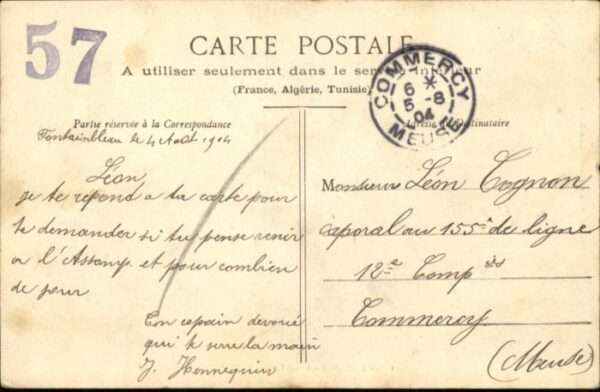 57
CARTE POSTALE
A utiliser seulement dans le service intérieur
(France, Algérie, Tunisie)
COMMERCY
6 *
5 -8
04
MEUSE
Partie réservée à la Correspondance
Adresse du Destinataire
Fontainbleau le 4 Août 1904
Léon
je te répond a ta carte pour
te demander si tu pense venir
a l'Assomp. et pour combien
de jour
Ton copain devoué
qui te serre la main
J. Hennequin
Monsieur Léon Cognon
caporal au 155e de ligne
12e Comp
Commercy
(Meuse)